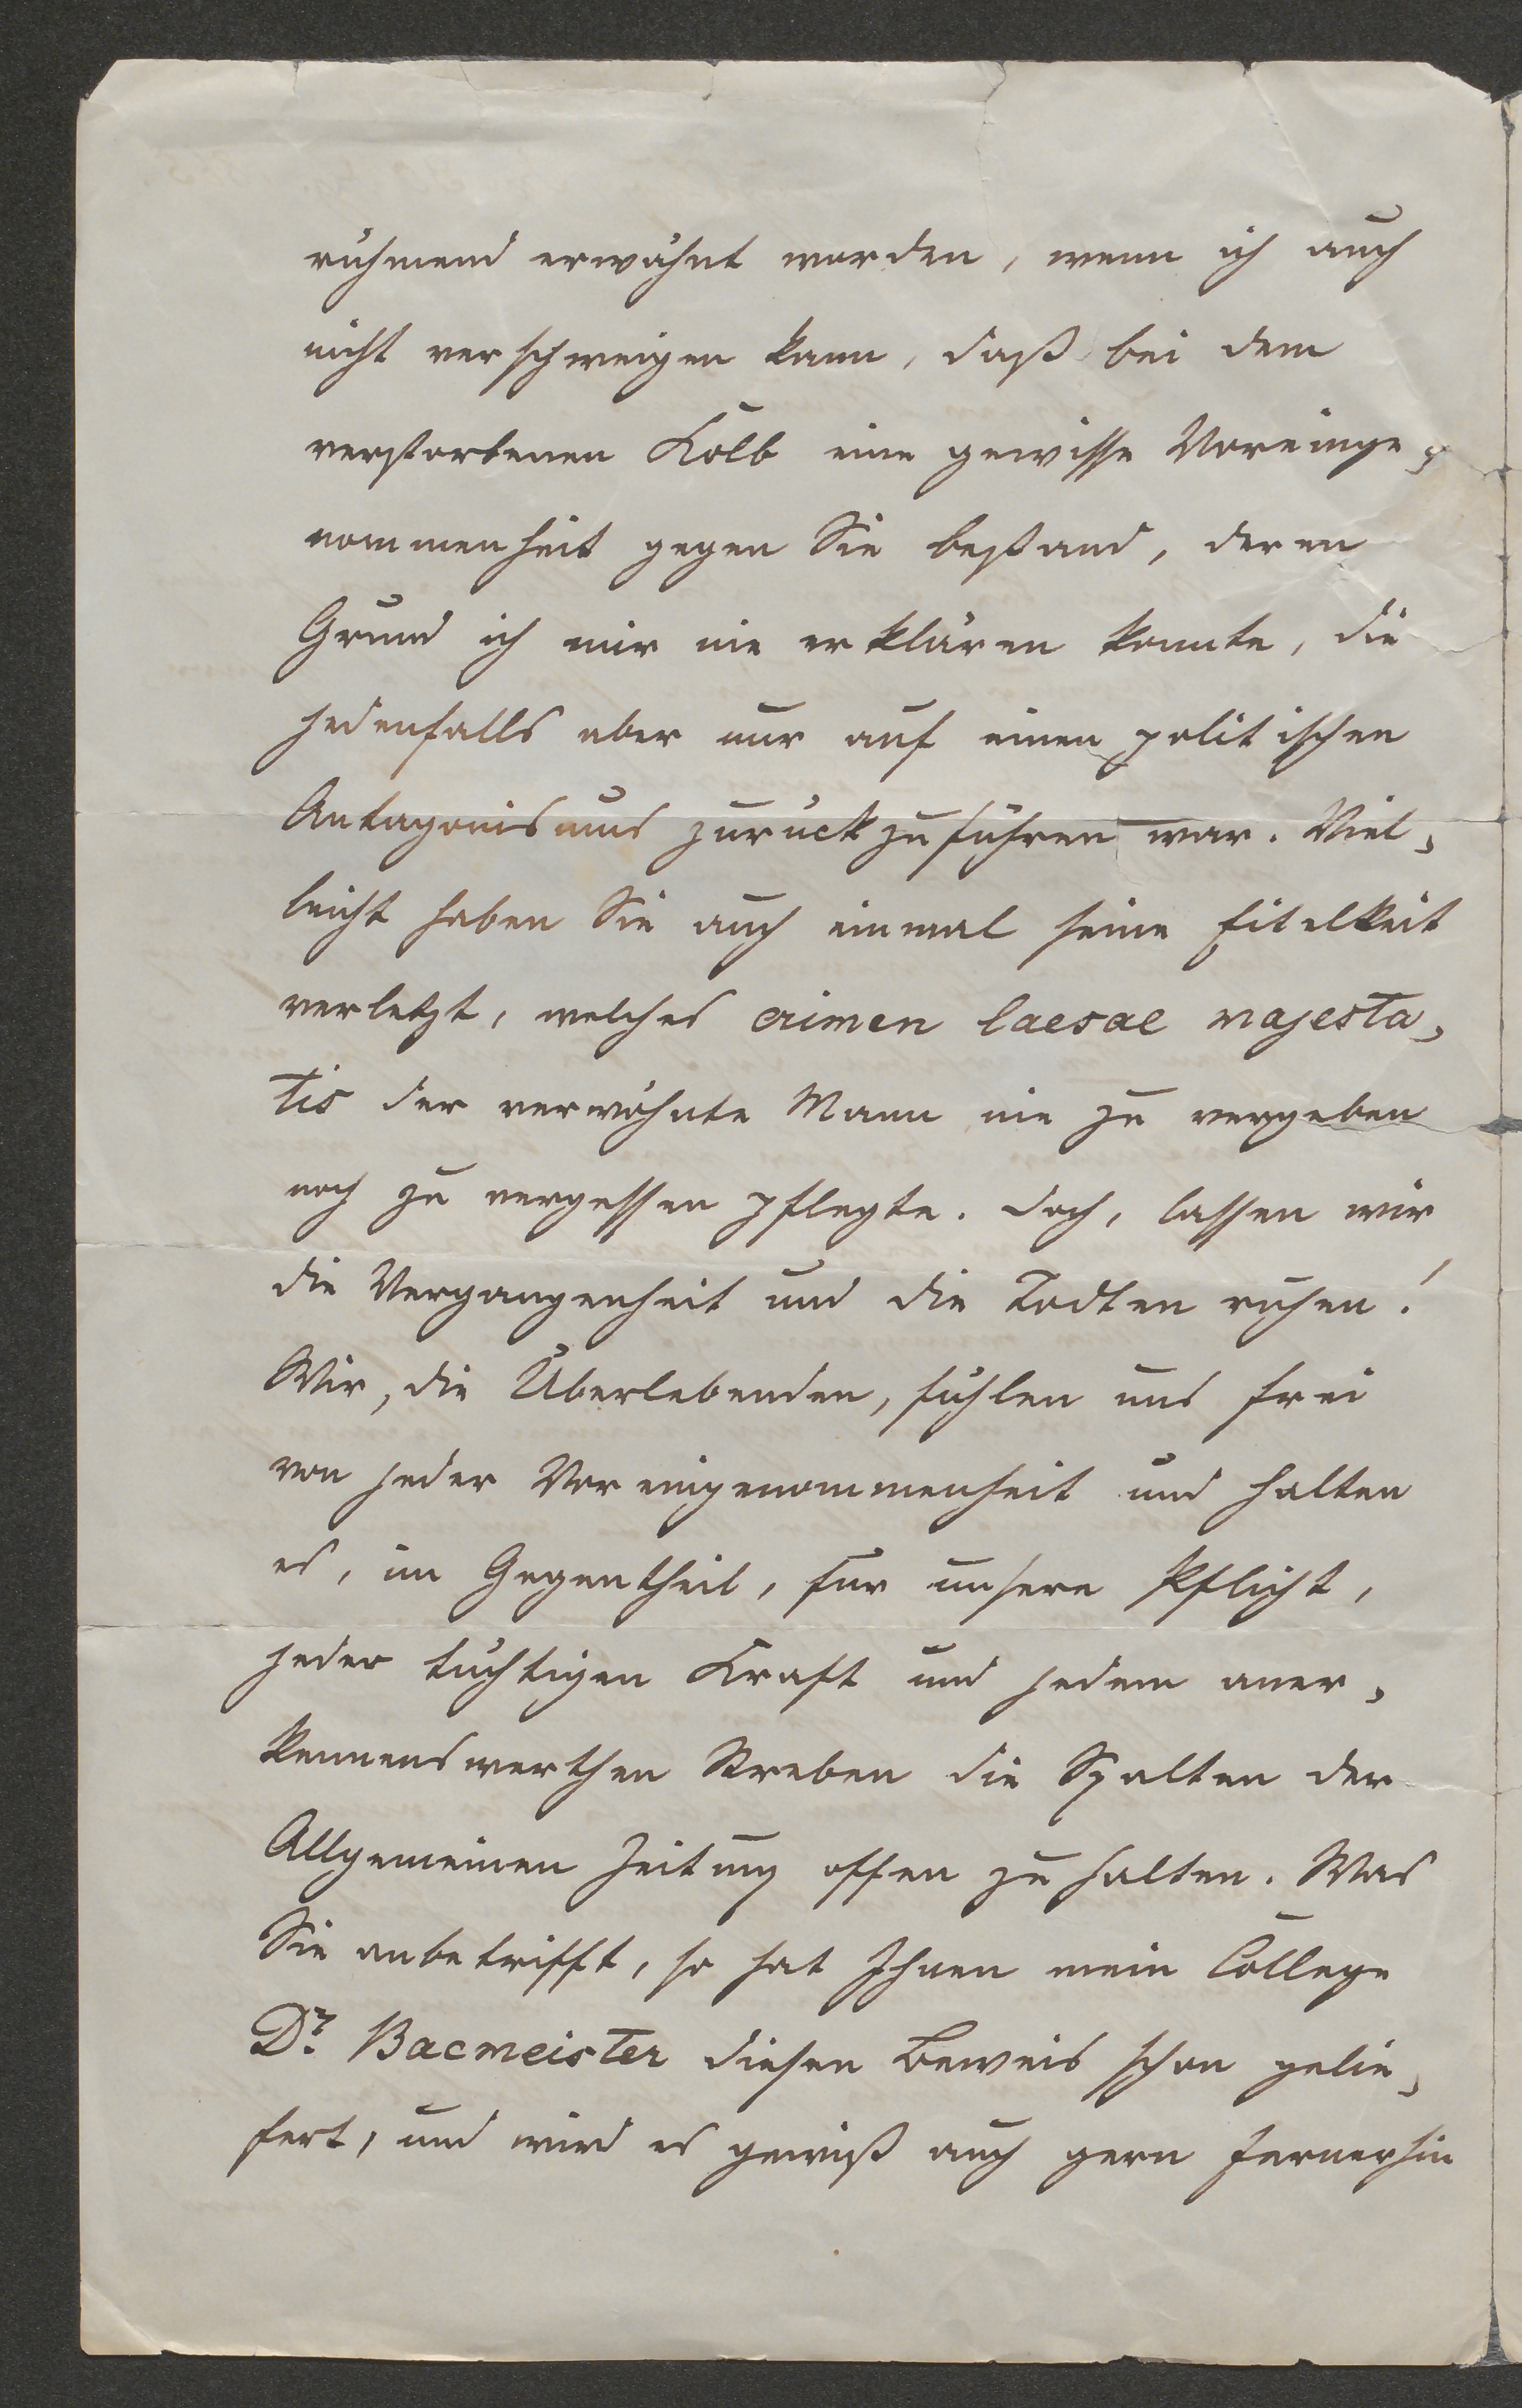 rühmend erwähnt worden, wenn ich auch
nicht verschweigen kann, daß bei dem
verstorbenen Kolb eine gewisse Voreinge-
nommenheit gegen Sie bestand, deren
Grund ich mir nie erklären konnte, die
jedenfalls aber nur auf einen politischen
Antagonismus zurückzuführen war. Viel-
leicht haben Sie auch einmal seine Eitelkeit
verletzt, welches crimen laesae majesta-
tis der verwöhnte Mann nie zu vergeben
noch zu vergessen pflegte. Doch, lassen wir
die Vergangenheit und die Todten ruhen!
Wir, die Überlebenden, fühlen uns frei
von jeder Voreingenommenheit und halten
es, im Gegentheil, für unsere Pflicht,
jeder tüchtigen Kraft und jedem aner-
kennenswerthen Streben die Spalten der
Allgemeinen Zeitung offen zu halten. Was
Sie anbetrifft, so hat Ihnen mein College
Dr. Bacmeister diesen Beweis schon gelie-
fert, und wird es gewiß auch gern fernerhin